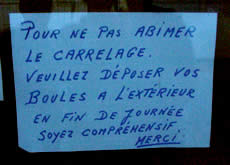 POUR NE PAS ABIMER
LE CARRELAGE.
VEUILLEZ DÉPOSER VOS
BOULES A L'EXTÉRIEUR
EN FIN DE JOURNÉE
SOYEZ COMPRÉHENSIF.
MERCI.